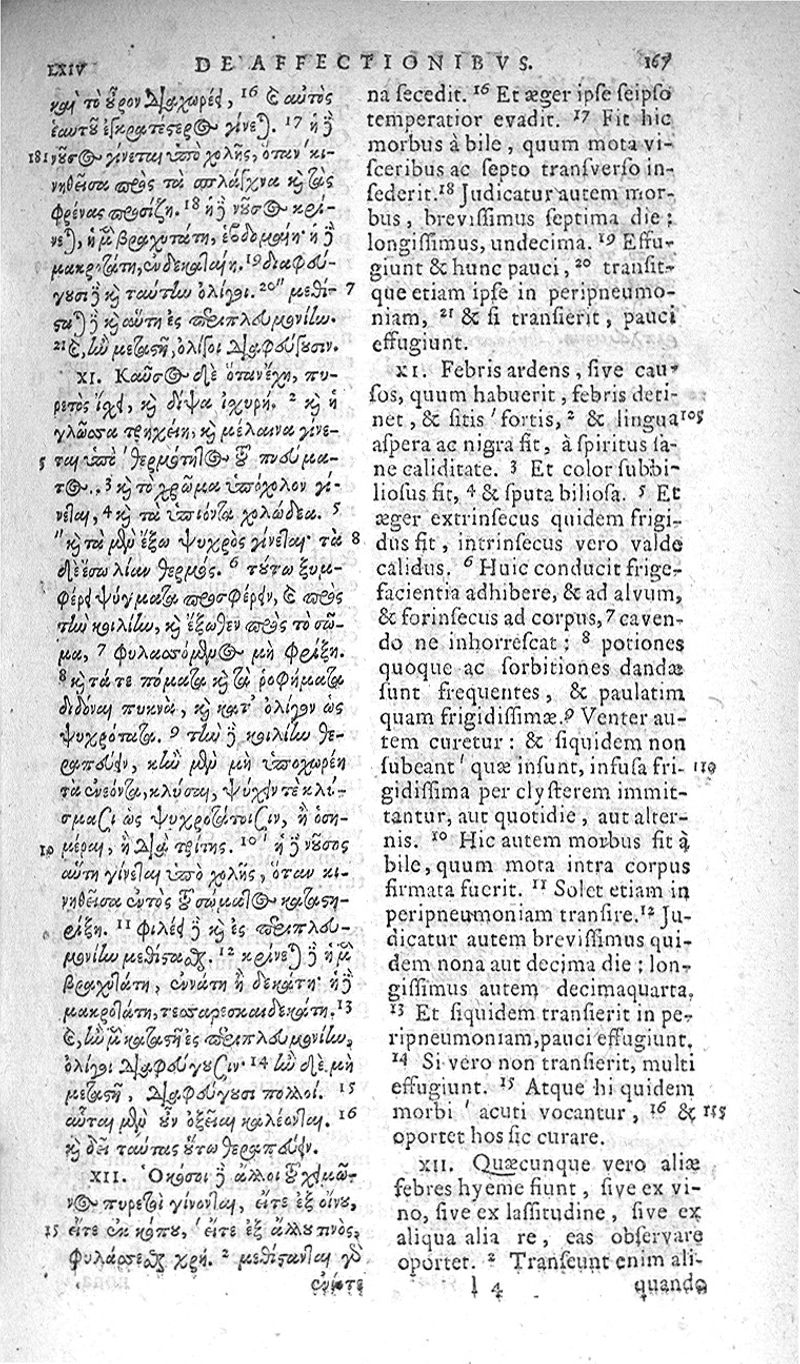 LXIV DE AFFECTIONIBVS. 167
καὶ τὸ οὖρον διαχωρέει, 16 καὶ αὐτὸς
ἑαυτοῦ ἐγκρατέστερος γίνεται. 17 ἡ δὲ
181 νοῦσος γίνεται ὑπὸ χολῆς, ὅταν κι-
νηθεῖσα πρὸς τὰ σπλάγχνα καὶ τὰς
φρένας προσίζῃ. 18 ἡ δὲ νοῦσος κρί-
νεται, ἡ μὲν βραχυτάτη, ἑβδομαίη· ἡ δὲ
μακροτάτη, ἑνδεκαταίη. 19 διαφεύ-
γουσι δὲ καὶ ταύτην ὀλίγοι. 20 " μεθί- 7
σταται δὲ καὶ αὕτη ἐς περιπλευμονίην.
21 καὶ, ἢν μεταστῇ, ὀλίγοι διαφεύγουσιν.
XI. Καῦσος δὲ ὅταν ἔχῃ, πυ-
ρετὸς ἴσχει, καὶ δίψα ἰσχυρή. 2 καὶ ἡ
γλῶσσα τρηχείη, καὶ μέλαινα γίνε-
5 ται ὑπὸ ' θερμότητος τοῦ πνεύμα-
τος. 3 καὶ τὸ χρῶμα ὑπόχολον γί-
νεται, 4 καὶ τὰ ὑπιόντα χολώδεα. 5
" καὶ τὰ μὲν ἔξω ψυχρὸς γίνεται· τὰ 8
δὲ ἔσω λίαν θερμός. 6 τούτῳ ξυμ-
φέρει ψύγματα προσφέρειν, καὶ πρὸς
τὴν κοιλίην, καὶ ἔξωθεν πρὸς τὸ σῶ-
μα, 7 φυλασσόμενος μὴ φρίξῃ.
8 καὶ τά τε πόματα καὶ τὰ ῥοφήματα
διδόναι πυκνὰ, καὶ κατ' ὀλίγον ὡς
ψυχρότατα. 9 τὴν δὲ κοιλίην θε-
ραπεύειν, κἢν μὲν μὴ ὑποχωρέῃ
τὰ ἐνεόντα, κλύσαι, ψύχειν τε κλύ-
σμασι ὡς ψυχροτάτοισιν, ἢ ὁση-
10 μέραι, ἢ διὰ τρίτης. 10 ' ἡ δὲ νοῦσος
αὕτη γίνεται ὑπὸ χολῆς, ὅταν κι-
νηθεῖσα ἐντὸς τοῦ σώματος καταστη-
ρίξῃ. 11 φιλέει δὲ καὶ ἐς περιπλευ-
μονίην μεθίστασθαι. 12 κρίνεται δὲ ἡ μὲν
βραχυτάτη, ἐνάτη ἢ δεκάτη· ἡ δὲ
μακροτάτη, τεσσαρεσκαιδεκάτη. 13
καὶ, ἢν μὲν καταστῇ ἐς περιπλευμονίην,
ὀλίγοι διαφεύγουσιν· 14 ἢν δὲ μὴ
μεταστῇ, διαφεύγουσι πολλοί. 15
αὗται μὲν οὖν ὀξεῖαι καλέονται. 16
καὶ δεῖ ταύτας οὕτω θεραπεύειν.
XII. Ὁκόσοι δὲ ἄλλοι τοῦ χειμῶ-
νος πυρετοὶ γίνονται, εἴτε ἐξ οἴνου,
15 εἴτε ἐκ κόπου, ' εἴτε ἐξ ἄλλου τινὸς,
φυλάσσεσθαι χρή. 2 μεθίστανται γὰρ
ἐνίοτε
na secedit. 16 Et æger ipse seipso
temperatior evadit. 17 Fit hic
morbus à bile, quum mota vi-
sceribus ac septo transverso in-
sederit. 18 Judicatur autem mor-
bus, brevissimus septima die;
longissimus, undecima. 19 Effu-
giunt & hunc pauci, 20 transit-
que etiam ipse in peripneumo-
niam, 21 & si transierit, pauci
effugiunt.
XI. Febris ardens, sive cau-
sos, quum habuerit, febris deti-
net, & sitis ' fortis, 2 & lingua 105
aspera ac nigra fit, à spiritus sa-
ne caliditate. 3 Et color subbi-
liosus fit, 4 & sputa biliosa. 5 Et
æger extrinsecus quidem frigi-
dus fit, intrinsecus vero valde
calidus. 6 Huic conducit frige-
facientia adhibere, & ad alvum,
& forinsecus ad corpus, 7 caven-
do ne inhorrescat: 8 potiones
quoque ac sorbitiones dandæ
sunt frequentes, & paulatim
quam frigidissimæ. 9 Venter au-
tem curetur: & siquidem non
subeant ' quæ insunt, infusa fri- 110
gidissima per clysterem immit-
tantur, aut quotidie, aut alter-
nis. 10 Hic autem morbus fit à
bile, quum mota intra corpus
firmata fuerit. 11 Solet etiam in
peripneumoniam transire. 12 Ju-
dicatur autem brevissimus qui-
dem nona aut decima die; lon-
gissimus autem decimaquarta.
13 Et siquidem transierit in pe-
ripneumoniam, pauci effugiunt.
14 Si vero non transierit, multi
effugiunt. 15 Atque hi quidem
morbi ' acuti vocantur, 16 & 115
oportet hos sic curare.
XII. Quæcunque vero aliæ
febres hyeme fiunt, sive ex vi-
no, sive ex lassitudine, sive ex
aliqua alia re, eas observare
oportet. 2 Transeunt enim ali-
l 4 quando